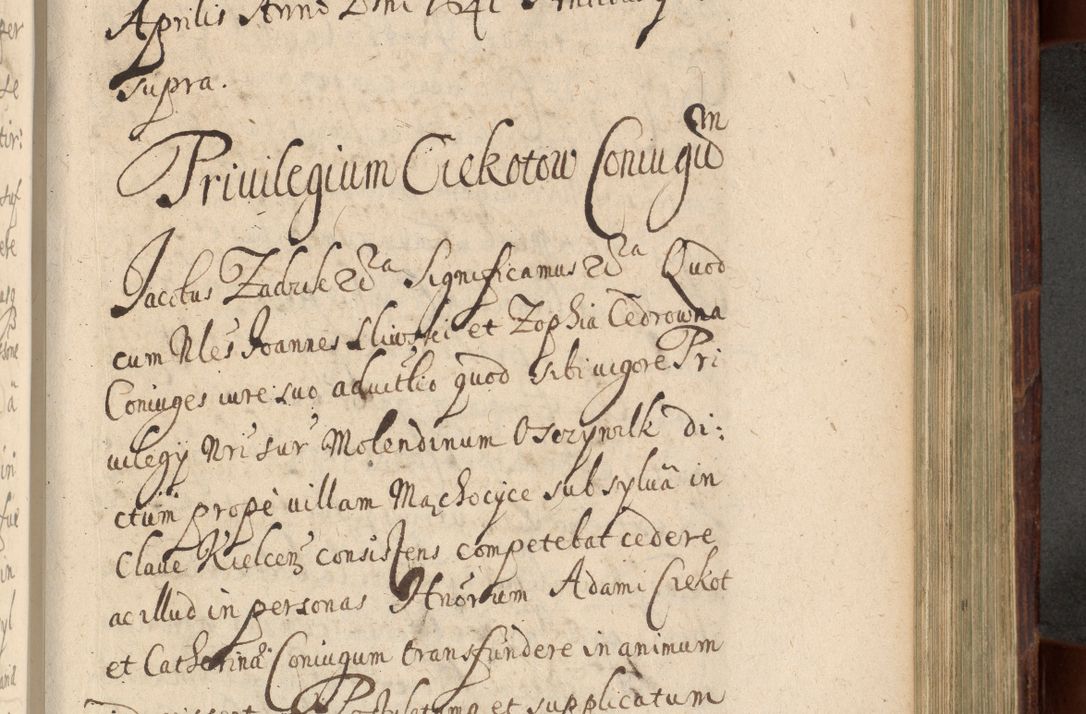 Aprilis Anno Dni 1641
supra.
Priuilegium Ciekotow Coniugũ m
Jacobus Zadzik &c̃a Significamus &c̃a Quod
cum Nles Joannes Sliwski et Zophia Cedrowna
Coniuges iure suo aduitlio quod sibi uigore Pri
uilegÿ Nri sur Molendinum Oserzywilk di:
ctum prope uillam Mąchocyce sub syluã in
Claue Kielcen̄ consistens competebat cedere
ac illud in personas Hnorum Adami Ciekot
et Catherina Coniugum transfundere in animum
et supplicatum
per